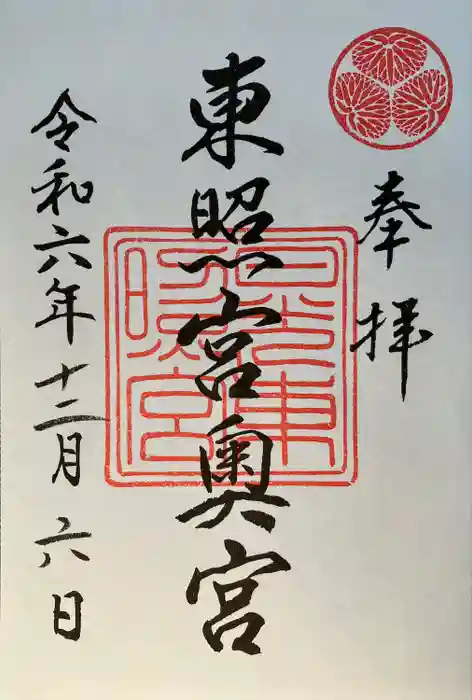 奉拝
東照宮奥宮
令和六年十二月六日
日光東照宮